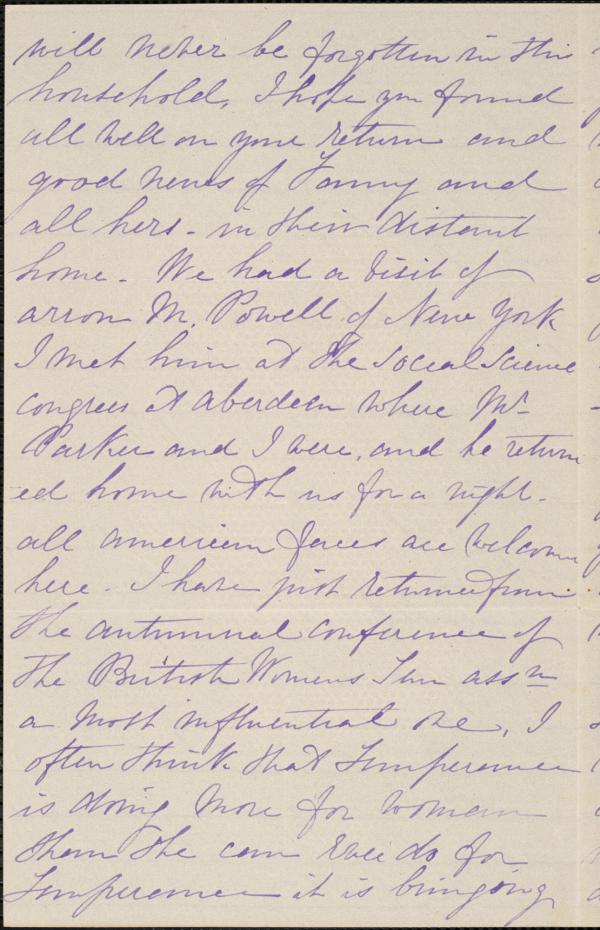 will never be forgotten in this
household, I hope you found
all well on your return and
good news of Fanny and
all hers - in their distant
home - We had a visit of
arron M. Powell of New York
I met him at the Social Science
congress at Aberdeen where Mrs
Parker and I were, and he return
ed home with us for a night -
all american faces are welcome
here - I have just returned from
the autumnal conference of
the British Womens Tem assn
a most influential one, I
often think that Temperance
is doing more for woman
than she can ever do for
Temperance it is bringing